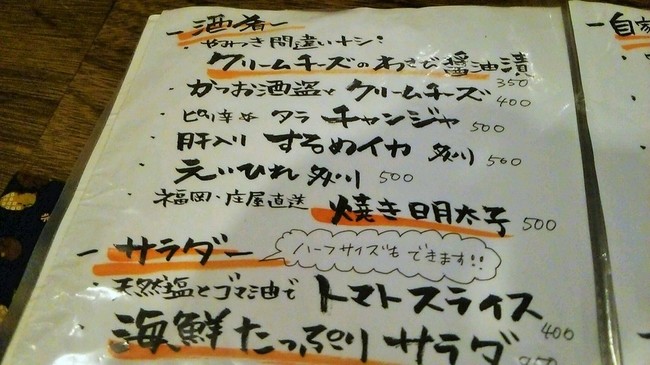 ー酒肴ー
・やみつき間違いナシ!
クリームチーズのわさび醤油漬 350
・かつお酒盗とクリームチーズ 400
・ピリ辛な タラ チャンジャ 500
・肝入り するめイカ 炙り 500
・えいひれ 炙り 500
・福岡・庄屋直送 焼き明太子 500
ーサラダー
ハーフサイズもできます!!
・天然塩とゴマ油で トマトスライス 400
・海鮮たっぷりサラダ
ー自家